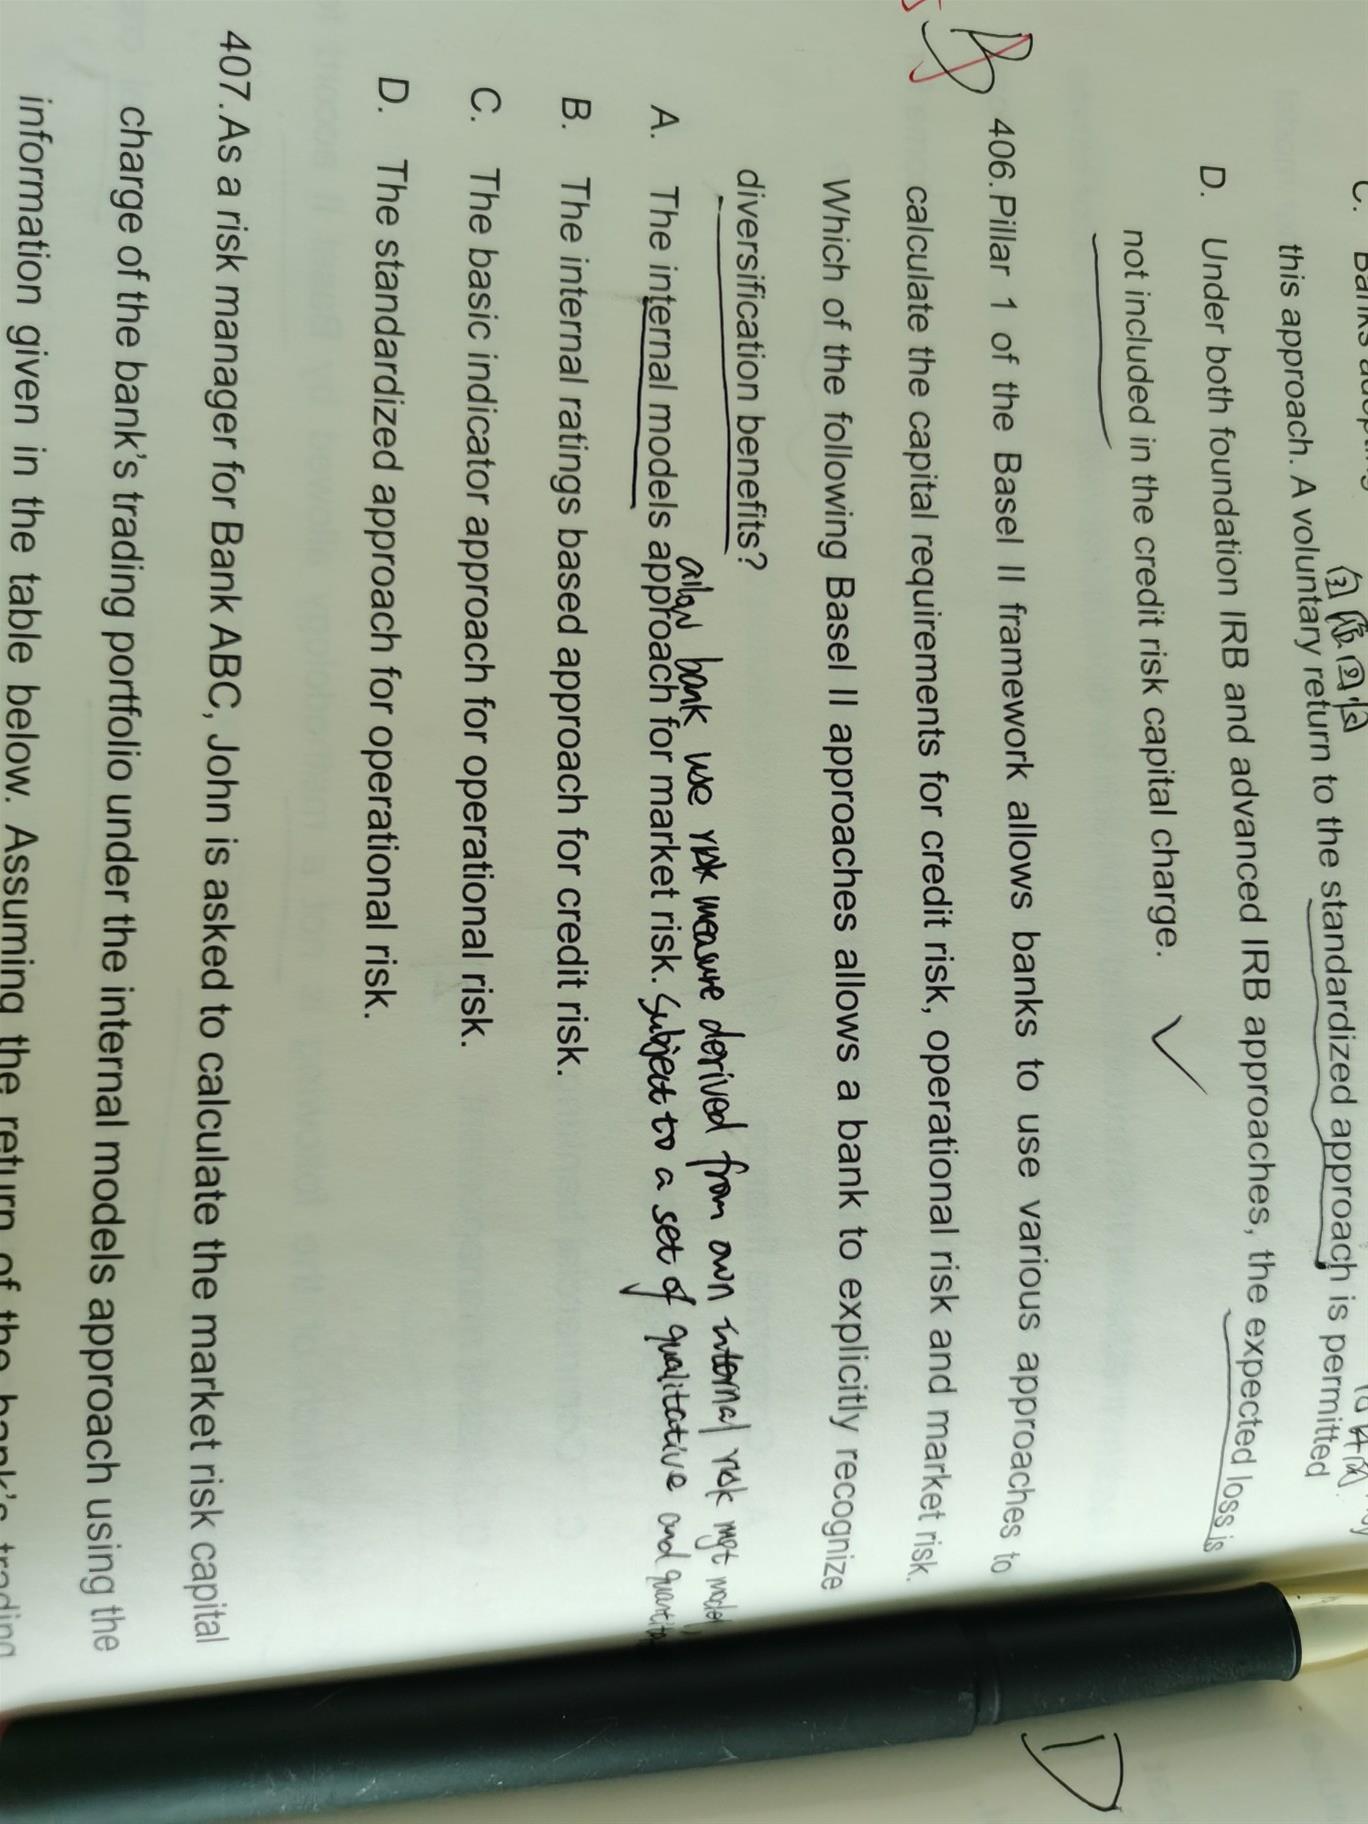 this approach. A voluntary return to the standardized approach is permitted
D. Under both foundation IRB and advanced IRB approaches, the expected loss is
not included in the credit risk capital charge.
406. Pillar 1 of the Basel II framework allows banks to use various approaches to
calculate the capital requirements for credit risk, operational risk and market risk.
Which of the following Basel II approaches allows a bank to explicitly recognize
diversification benefits?
allow bank use risk measure derived from own internal risk mgt model,
A. The internal models approach for market risk. Subject to a set of qualitative and
B. The internal ratings based approach for credit risk.
C. The basic indicator approach for operational risk.
D. The standardized approach for operational risk.
407. As a risk manager for Bank ABC, John is asked to calculate the market risk capital
charge of the bank's trading portfolio under the internal models approach using the
information given in the table below. Assuming the return of the bank's trading
D